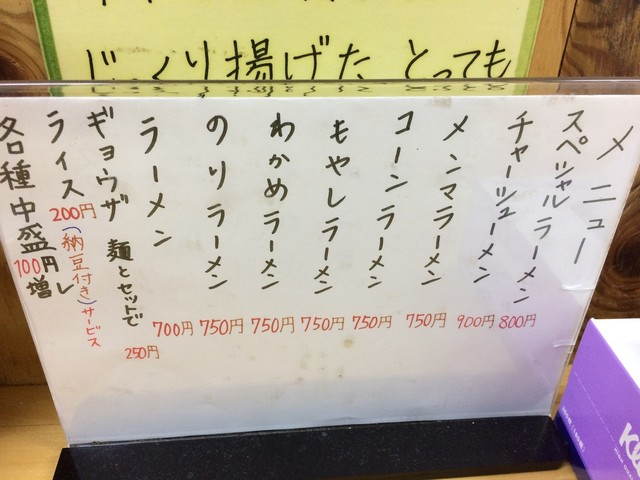 じっくり揚げた とっても
メニュー
スペシャルラーメン 800円
チャーシューメン 900円
メンマラーメン 750円
コーンラーメン 750円
もやしラーメン 750円
わかめラーメン 750円
のりラーメン 750円
ラーメン 700円
ギョウザ 麺とセットで 250円
ライス 200円 (納豆付き) サービス
各種中盛 100円増し